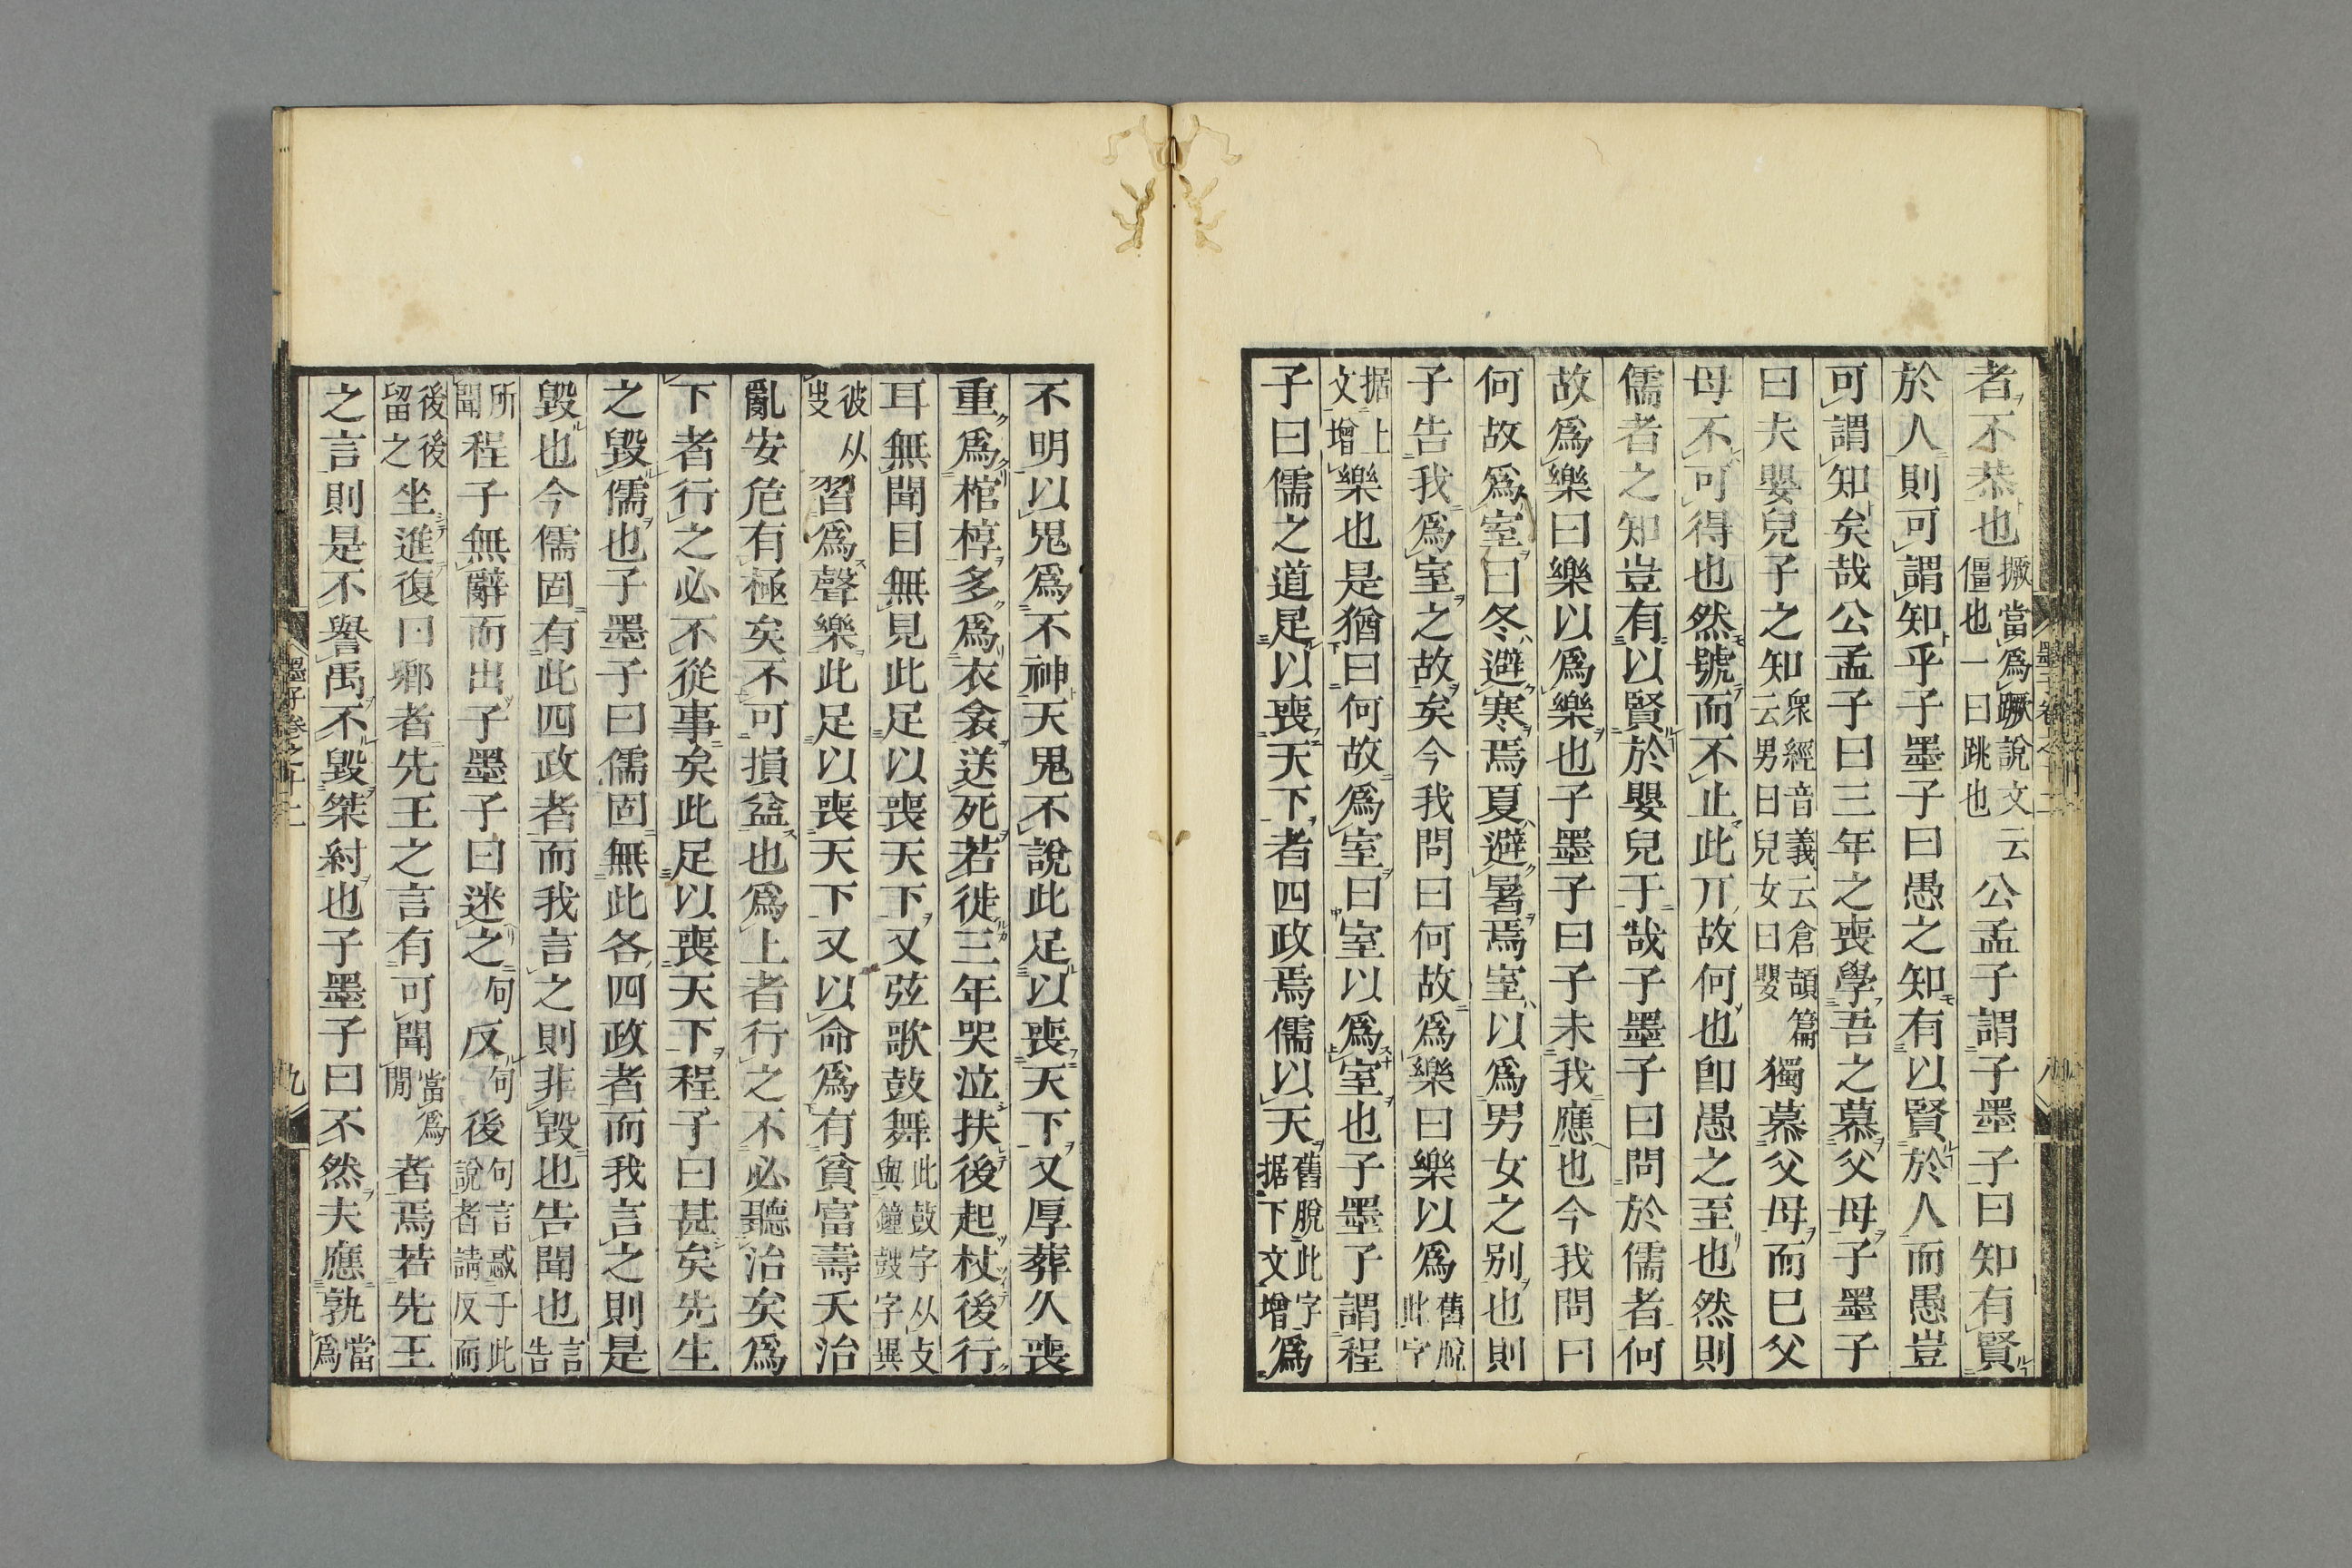 者不恭也撅當爲蹶說文云僵也一曰跳也公孟子謂子墨子曰知有賢
於人則可謂知乎子墨子曰愚之知有以賢於人而愚豈
可謂知矣哉公孟子曰三年之喪學吾之慕父母子墨子
曰夫嬰兒子之知衆經音義云倉頡篇云男曰兒女曰嬰獨慕父母而已父
母不可得也然號而不止此丌故何也卽愚之至也然則
儒者之知豈有以賢於嬰兒子哉子墨子曰問於儒者何
故爲樂曰樂以爲樂也子墨子曰子未我應也今我問曰
何故爲室曰冬避寒焉夏避暑焉室以爲男女之别也則
子告我爲室之故矣今我問曰何故爲樂曰樂以爲舊脫此字
据上文增樂也是猶曰何故爲室曰室以爲室也子墨子謂程
子曰儒之道足以喪天下者四政焉儒以天舊脫此字据下文增爲
不明以鬼爲不神天鬼不說此足以喪天下又厚葬久喪
重爲棺椁多爲衣衾送死若徙三年哭泣扶後起杖後行
耳無聞目無見此足以喪天下又弦歌鼓舞此鼓字从攴與鐘鼓字異
彼从𠬢習爲聲樂此足以喪天下又以命爲有貧富壽夭治
亂安危有極矣不可損益也爲上者行之不必聽治矣爲
下者行之必不從事矣此足以喪天下程子曰甚矣先生
之毀儒也子墨子曰儒固無此各四政者而我言之則是
毀也今儒固有此四政者而我言之則非毀也告聞也言告
所聞程子無辭而出子墨子曰迷之句反句後句言惑于此說者請反而
後後留之坐進復曰鄕者先王之言有可聞當爲閒者焉若先王
之言則是不譽禹不毀桀紂也子墨子曰不然夫應孰當爲
墨子卷之十二
八
墨子卷之十二
九